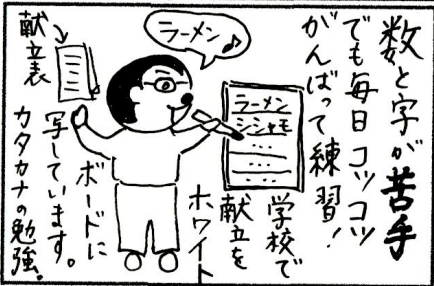 数と字が苦手
でも毎日コツコツ
がんばって練習!
ラーメン♪
献立表
ラーメン
シシャモ
…
…
学校で
献立を
ホワイト
ボードに
写しています。
カタカナの勉強。